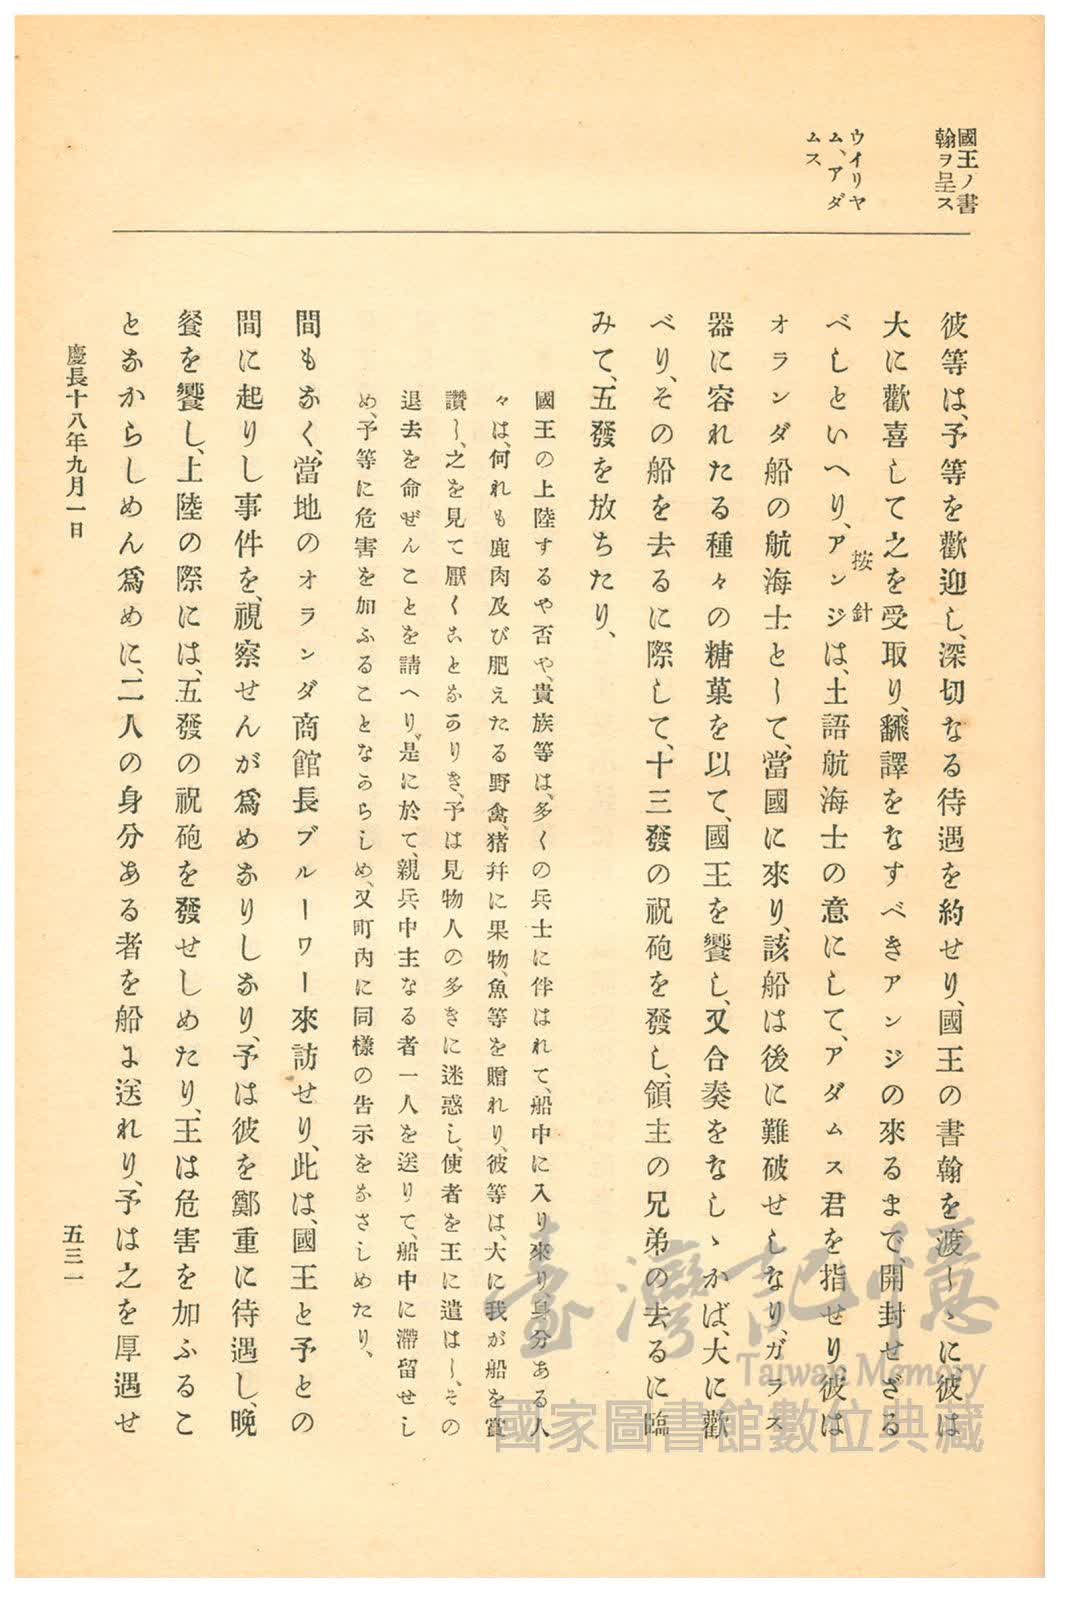 國王ノ書
翰ヲ呈ス
ウイリヤ
ム、アダ
ムス
彼等は、予等を歡迎し、深切なる待遇を約せり、國王の書翰を渡しゝに彼は
大に歡喜して之を受取り、飜譯をなすべきアンジの來るまで、開封せざる
按針
べしといへり、アンジは、土語航海士の意にして、アダムス君を指せり彼は
オランダ船の航海士として、當國に來り、該船は後に難破せしなり、ガラス
器に容れたる種々の糖菓を以て、國王を饗し、又合奏をなしゝかば、大に歡
べり、その船を去るに際して、十三發の祝砲を發し、領主の兄弟の去るに臨
みて、五發を放ちたり、
國王の上陸するや否や、貴族等は、多くの兵士に伴はれて、船中に入り來り、身分ある人
々は、何れも鹿肉及び肥えたる野禽、猪幷に果物、魚等を贈れり、彼等は、大に我が船を賞
讚し、之を見て厭くことなかりき、予は見物人の多きに迷惑し、使者を王に遣はし、その
退去を命ぜんことを請へり、是に於て、親兵中主なる者一人を送りて、船中に滯留せし
め、予等に危害を加ふることなからしめ、又町內に同樣の吿示をなさしめたり、
間もなく、當地のオランダ商館長ブルーワー來訪せり、此は、國王と予との
間に起りし事件を、視察せんが爲めなりしなり、予は彼を鄭重に待遇し、晩
餐を饗し、上陸の際には、五發の祝砲を發せしめたり、王は危害を加ふるこ
となからしめん爲めに、二人の身分ある者を船に送れり、予は之を厚遇せ
慶長十八年九月一日
五三一
臺灣記憶
Taiwan Memory
國家圖書館數位典藏